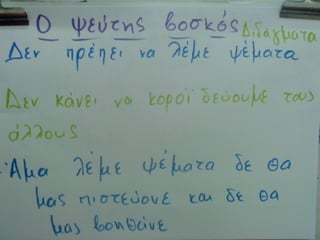 Ο ψεύτης βοσκός Διδάγματα
Δεν πρέπει να λέμε ψέματα
Δεν κάνει να κοροϊδεύουμε τους
άλλους
Άμα λέμε ψέματα δε θα
μας πιστεύουνε και δε θα
μας βοηθάνε